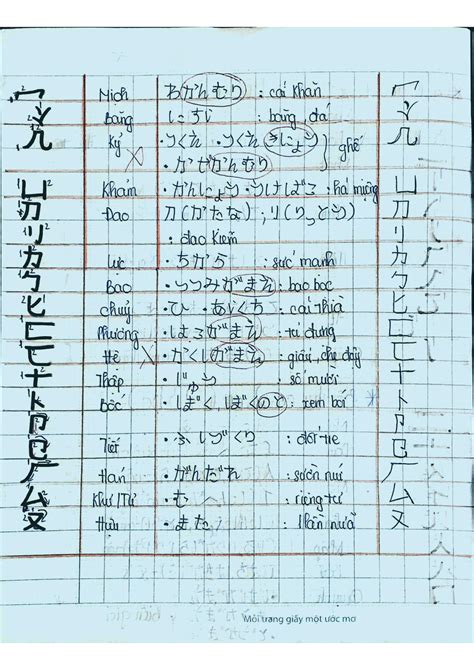 冖 Mịch わかんむり : cái khăn 冖
冫 Băng にすい : băng, đá 冫
几 Kỷ ・つくえ ・つくえ きにょう 几
・かぜかんむり } ghế
凵 Khảm ・かんにょう ・うけばこ : há miệng 凵
刀 Đao 刀 (かたな) ; リ (りっとう) 刀
リ : dao kiếm リ
力 Lực ・ちから : sức mạnh 力
勹 Bao ・つつみがまえ : bao bọc 勹
匕 chuỷ ・ひ ・あいくち : cái thìa 匕
匚 Phương ・はこがまえ : tủ đựng 匚
匸 Hệ ・かくしがまえ : giấu, che đậy 匸
十 Thập ・じゅう : số mười 十
卜 Bốc ・ぼく, ぼくのと : xem bói 卜
卩 卩
㔾 Tiết ・ふしづくり : đốt tre 㔾
厂 Hán ・がんだれ : sườn núi 厂
厶 Khư / Tư ・む : riêng tư 厶
又 Hựu ・また : lần nữa 又
Mỗi trang giấy một ước mơ